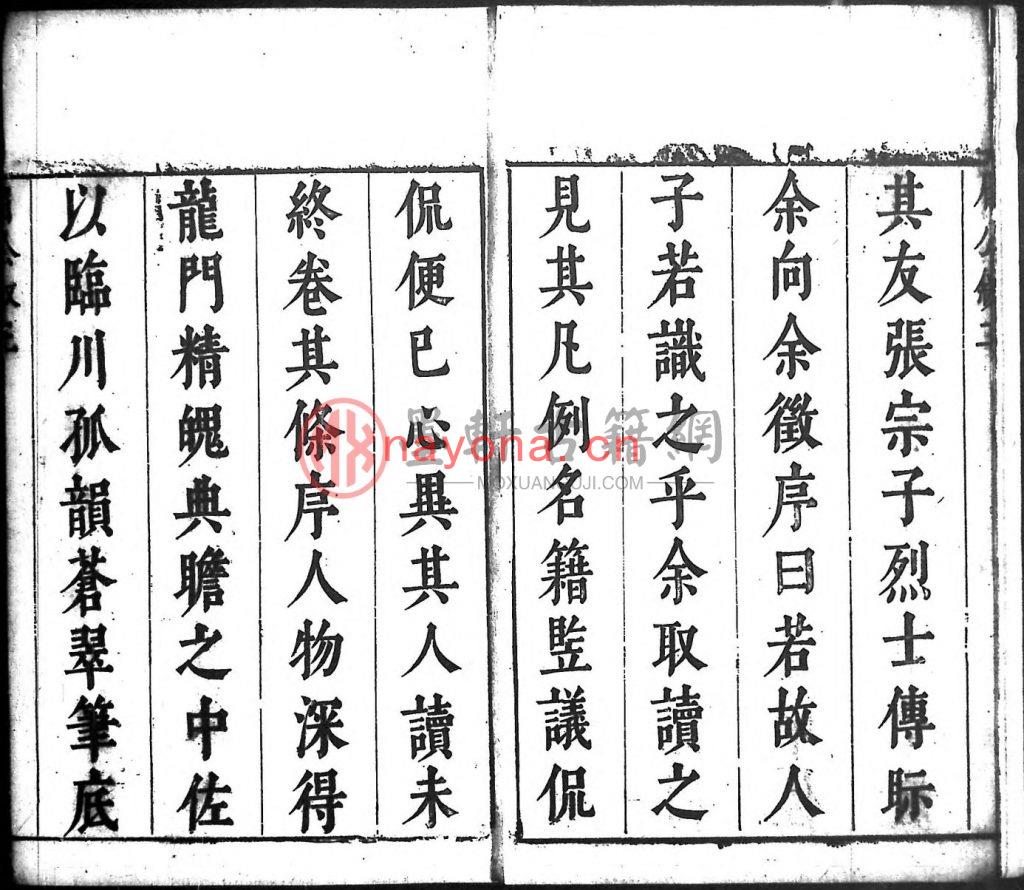 其友張宗子烈士傳眎
余向余徵序曰若故人
子若識之乎余取讀之
見其凡例名籍監議侃
侃便已心異其人讀未
終卷其條序人物深得
龍門精魄典贍之中佐
以臨川孤韻蒼翠筆底
墨軒古籍網
nayona.cn
MOXUANGUJI.COM